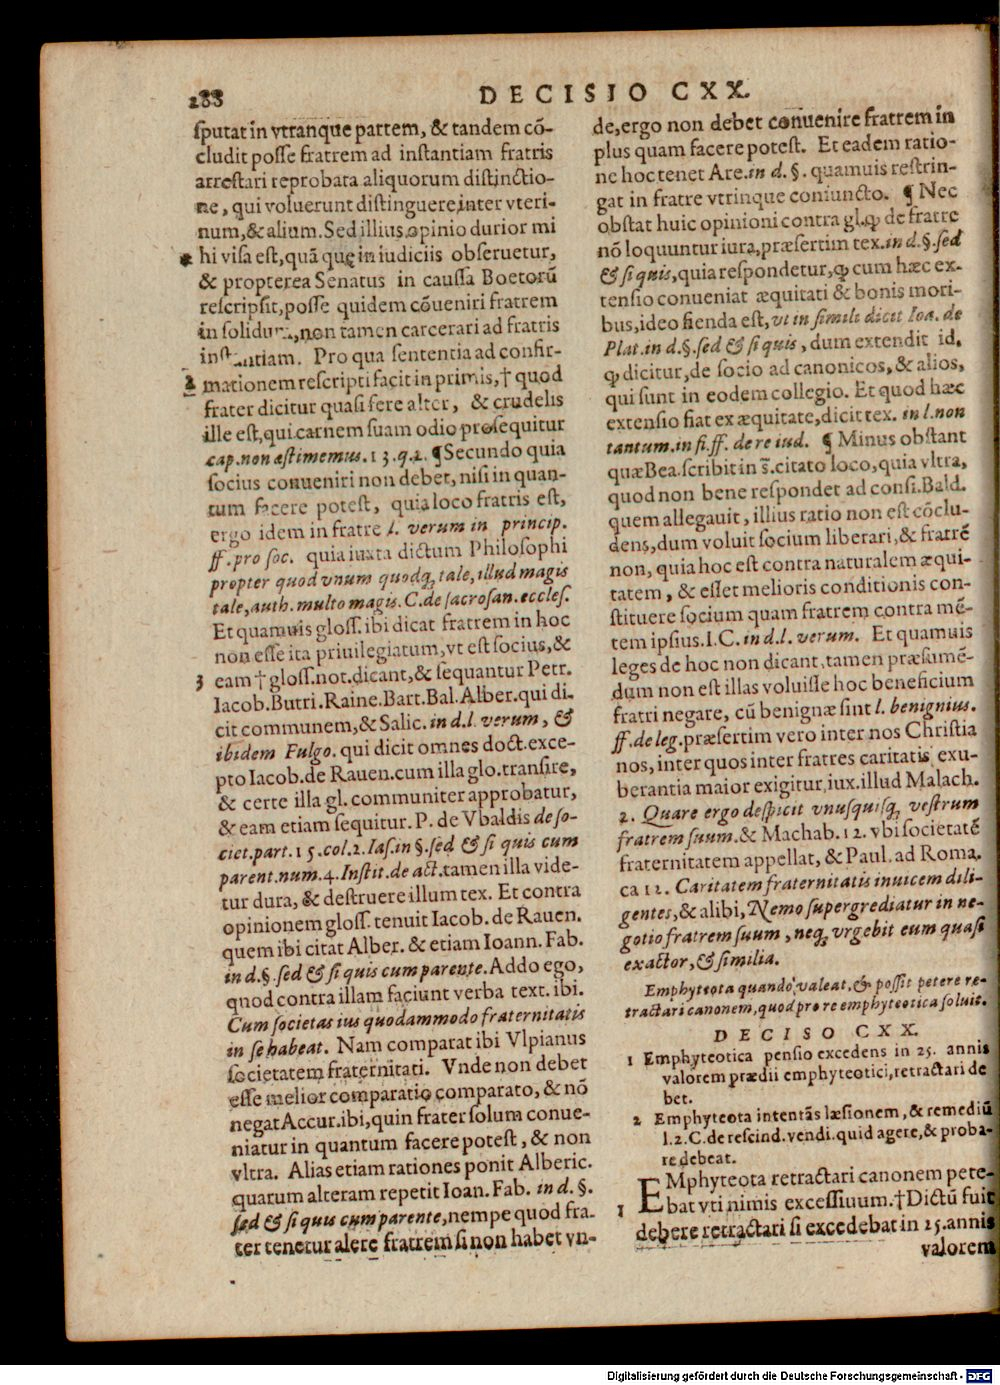 288
DECISIO CXX.
sputat in vtranque partem, & tandem cō-
cludit posse fratrem ad instantiam fratris
arrestari reprobata aliquorum distinctio-
ne, qui voluerunt distinguere inter vteri-
num, & alium. Sed illius opinio durior mi
hi visa est, quã quę in iudiciis obseruetur,
& propterea Senatus in caussa Boetorũ
rescripsit, posse quidem cōueniri fratrem
in solidum, non tamen carcerari ad fratris
instantiam. Pro qua sententia ad confir-
2 mationem rescripti facit in primis, † quod
frater dicitur quasi fere alter, & crudelis
ille est, qui carnem suam odio prosequitur
cap. non æstimemus. 13. q. 2. ¶ Secundo quia
socius conueniri non debet, nisi in quan-
tum facere potest, quia loco fratris est,
ergo idem in fratre l. verum in princip.
ff. pro soc. quia iuxta dictum Philosophi
propter quod vnum quodq; tale, illud magis
tale, auth. multo magis. C. de sacrosan. eccles.
Et quamuis gloss. ibi dicat fratrem in hoc
non esse ita priuilegiatum, vt est socius, &
3 eam † gloss. not. dicant, & sequantur Petr.
Iacob. Butri. Raine. Bart. Bal. Alber. qui di-
cit communem, & Salic. in d. l. verum, &
ibidem Fulgo. qui dicit omnes doct. exce-
pto Iacob. de Rauen. cum illa glo. transire,
& certe illa gl. communiter approbatur,
& eam etiam sequitur. P. de Vbaldis de so-
ciet. part. 15. col. 2. Ias. in §. sed & si quis cum
parent. num. 4. Instit. de act. tamen illa vide-
tur dura, & destruere illum tex. Et contra
opinionem gloss. tenuit Iacob. de Rauen.
quem ibi citat Alber. & etiam Ioann. Fab.
in d. §. sed & si quis cum parente. Addo ego,
quod contra illam faciunt verba text. ibi.
Cum societas ius quodammodo fraternitatis
in se habeat. Nam comparat ibi Vlpianus
societatem fraternitati. Vnde non debet
esse melior comparatio comparato, & nō
negat Accur. ibi, quin frater solum conue-
niatur in quantum facere potest, & non
vltra. Alias etiam rationes ponit Alberic.
quarum alteram repetit Ioan. Fab. in d. §.
sed & si quis cum parente, nempe quod fra-
ter tenetur alere fratrem si non habet vn-
de, ergo non debet conuenire fratrem in
plus quam facere potest. Et eadem ratio-
ne hoc tenet Are. in d. §. quamuis restrin-
gat in fratre vtrinque coniuncto. ¶ Nec
obstat huic opinioni contra gl. ꝙ de fratre
nō loquuntur iura, præsertim tex. in d. §. sed
& si quis, quia respondetur, ꝙ cum hæc ex-
tensio conueniat æquitati & bonis mori-
bus, ideo fienda est, vt in simili dicit Ioa. de
Plat. in d. §. sed & si quis, dum extendit id,
ꝙ dicitur, de socio ad canonicos, & alios,
qui sunt in eodem collegio. Et quod hæc
extensio fiat ex æquitate, dicit tex. in l. non
tantum. in fi. ff. de re iud. ¶ Minus obstant
quæ Bea. scribit in s̃. citato loco, quia vltra,
quod non bene respondet ad consi. Bald.
quem allegauit, illius ratio non est cōclu-
dens, dum voluit socium liberari, & fratrē
non, quia hoc est contra naturalem æqui-
tatem, & esset melioris conditionis con-
stituere socium quam fratrem contra mē-
tem ipsius. I. C. in d. l. verum. Et quamuis
leges de hoc non dicant, tamen præsumē-
dum non est illas voluisse hoc beneficium
fratri negare, cũ benignæ sint l. benignius.
ff. de leg. præsertim vero inter nos Christia
nos, inter quos inter fratres caritatis exu-
berantia maior exigitur, iux. illud Malach.
2. Quare ergo despicit vnusquisq; vestrum
fratrem suum. & Machab. 12. vbi societatē
fraternitatem appellat, & Paul. ad Roma.
ca 12. Caritatem fraternitatis inuicem dili-
gentes, & alibi, Nemo supergrediatur in ne-
gotio fratrem suum, neq; vrgebit eum quasi
exactor, & similia.
Emphyteota quando valeat, & possit petere re-
tractari canonem, quod pro re emphyteotica soluit.
DECISO CXX.
1 Emphyteotica pensio excedens in 25. annis
valorem prædii emphyteotici, retractari de
bet.
2 Emphyteota intentãs læsionem, & remediũ
l. 2. C. de rescind. vendi. quid agere, & proba-
re debeat.
EMphyteota retractari canonem pete-
1 bat vti nimis excessiuum. † Dictũ fuit
debere retractari si excedebat in 25. annis
valorem
Digitalisierung gefördert durch die Deutsche Forschungsgemeinschaft - DFG